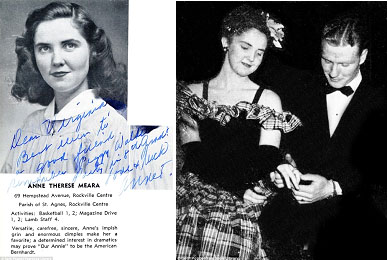 Dear Virginia
Best wishes to
a good friend
Remember
ANNE THERESE MEARA
69 Hempstead Avenue, Rockville Centre
Parish of St. Agnes, Rockville Centre
Activities: Basketball 1, 2; Magazine Drive
1, 2; Lamb Staff 4.
Versatile, carefree, sincere, Anne's impish
grin and enormous dimples make her a
favorite; a determined interest in dramatics
may prove "Our Annie" to be the American
Bernhardt.